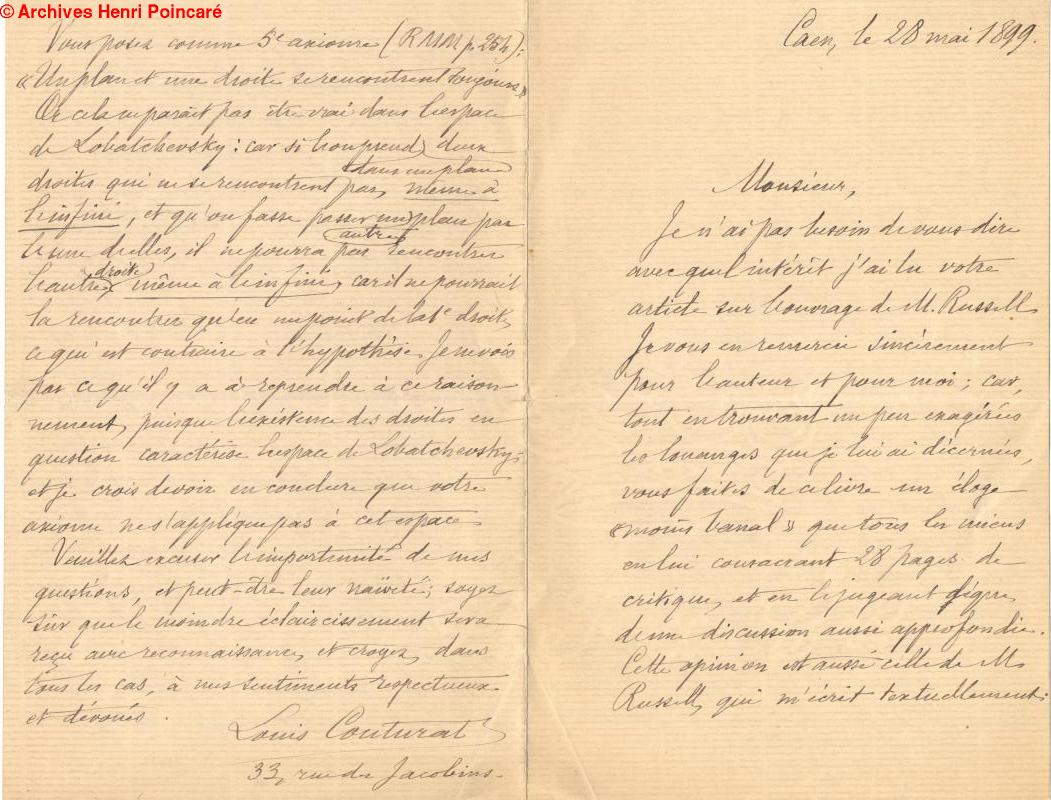 © Archives Henri Poincaré
Caen, le 28 mai 1899.
Monsieur,
Je n'ai pas besoin de vous dire
avec quel intérêt j'ai lu votre
article sur l'ouvrage de M. Russell.
Je vous en remercie sincèrement
pour l'auteur et pour moi ; car,
tout en trouvant un peu exagérées
les louanges que je lui ai décernées,
vous faites de ce livre un éloge
« moins banal » que tous les miens
en lui consacrant 28 pages de
critique, et en le jugeant digne
d'une discussion aussi approfondie.
Cette opinion est aussi celle de M.
Russell, qui m'écrit textuellement :
Vous posez comme 5e axiome (RMM p. 254) :
« Un plan et une droite se rencontrent toujours. »
Or cela ne paraît pas être vrai dans l'espace
de Lobatchevsky : car si l'on prend deux
dans un plan
droites qui ne se rencontrent pas, même à
l'infini, et qu'on fasse passer un plan par
autre
l'une d'elles, il ne pourra pas rencontrer
droite
l'autre, même à l'infini, car il ne pourrait
la rencontrer qu'en un point de la 1e droite,
ce qui est contraire à l'hypothèse. Je ne vois
pas ce qu'il y a à reprendre à ce raison-
nement, puisque l'existence des droites en
question caractérise l'espace de Lobatchevsky ;
et je crois devoir en conclure que votre
axiome ne s'applique pas à cet espace.
Veuillez excuser l'importunité de mes
questions, et peut-être leur naïveté ; soyez
sûr que le moindre éclaircissement sera
reçu avec reconnaissance, et croyez, dans
tous les cas, à mes sentiments respectueux
et dévoués.
Louis Couturat
33, rue des Jacobins.